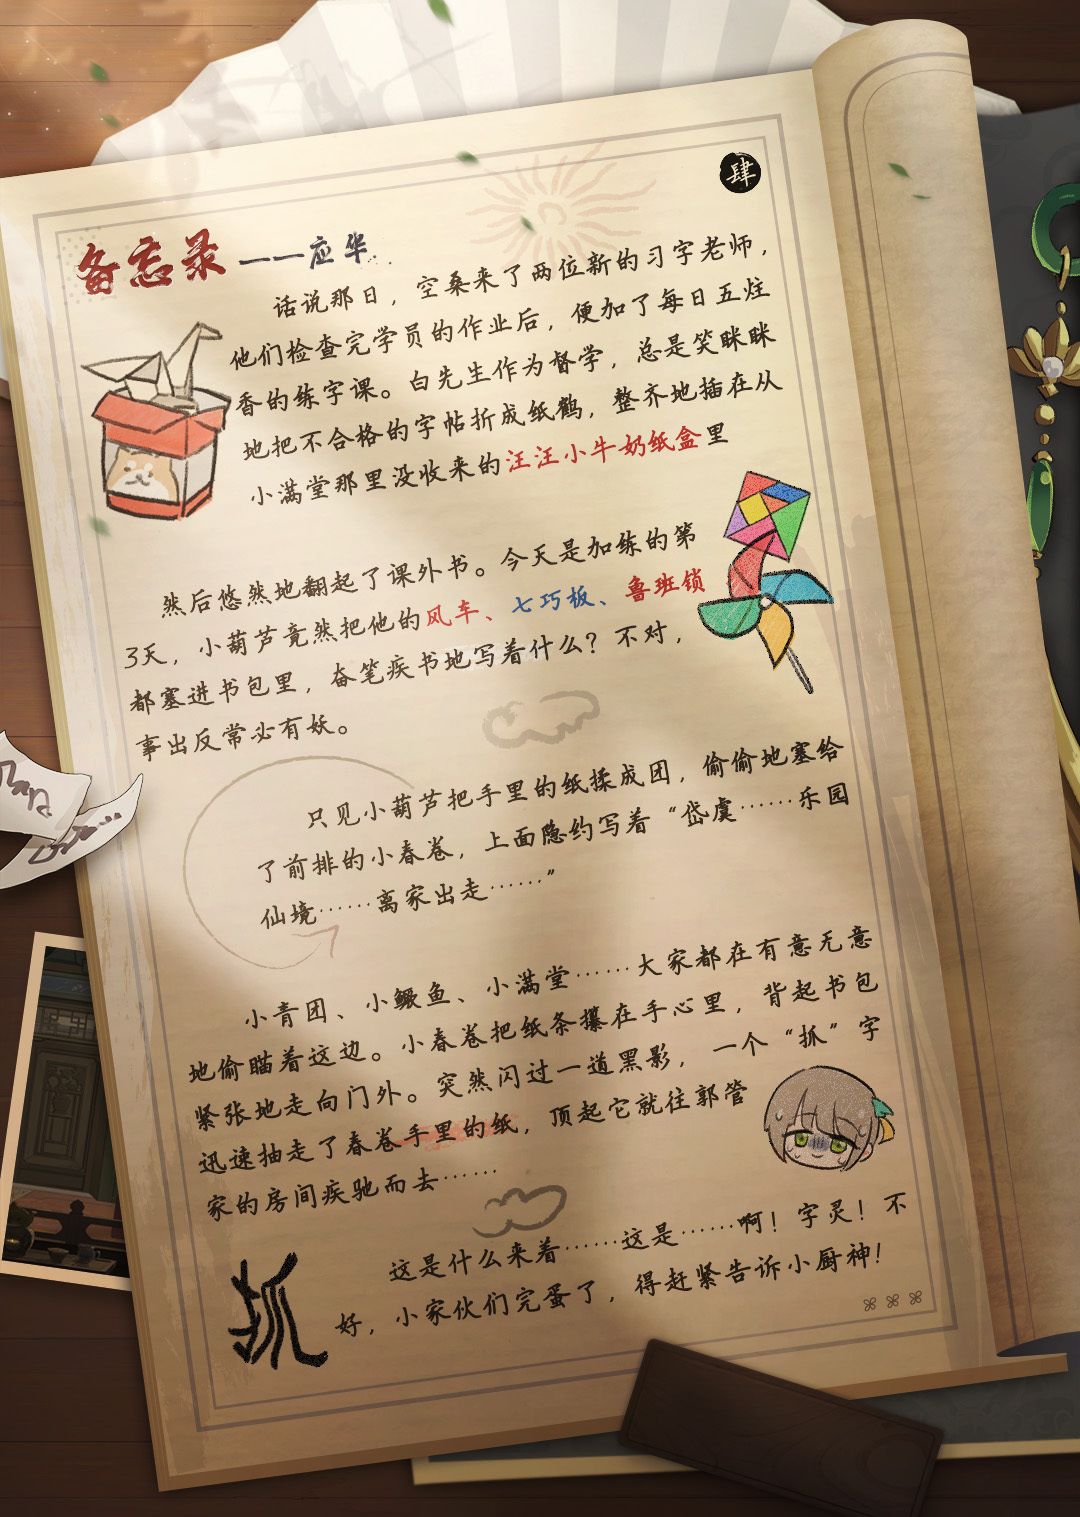 肆
备忘录——应华
话说那日，空桑来了两位新的习字老师，
他们检查完学员的作业后，便加了每日五炷
香的练字课。白先生作为督学，总是笑眯眯
地把不合格的字帖折成纸鹤，整齐地插在从
小满堂那里没收来的汪汪小牛奶纸盒里
然后悠然地翻起了课外书。今天是加练的第
3天，小葫芦竟然把他的风车、七巧板、鲁班锁
都塞进书包里，奋笔疾书地写着什么？不对，
事出反常必有妖。
只见小葫芦把手里的纸揉成团，偷偷地塞给
了前排的小春卷，上面隐约写着“岱虞……乐园
仙境……离家出走……”
小青团、小鳜鱼、小满堂……大家都在有意无意
地偷瞄着这边。小春卷把纸条攥在手心里，背起书包
紧张地走向门外。突然闪过一道黑影，一个“抓”字
迅速抽走了春卷手里的纸，顶起它就往郭管
家的房间疾驰而去……
这是什么来着……这是……啊！字灵！不
好，小家伙们完蛋了，得赶紧告诉小厨神！
抓